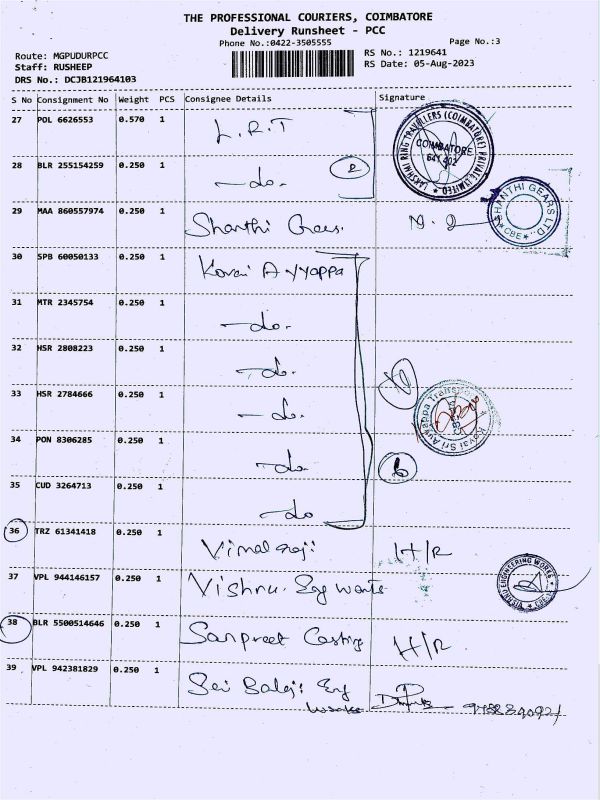 THE PROFESSIONAL COURIERS, COIMBATORE
Delivery Runsheet - PCC
Phone No.:0422-3505555
Page No.:3
Route: MGPUDURPCC
Staff: RUSHEEP
DRS No.: DCJB121964103
RS No.: 1219641
RS Date: 05-Aug-2023
S No Consignment No Weight PCS Consignee Details Signature
27 POL 6626553 0.570 1 L.R.T
LAKSHMI RING TRAVELLERS (COIMBATORE) PRIVATE LIMITED
COIMBATORE
641 402
28 BLR 255154259 0.250 1 -do. 2
29 MAA 860557974 0.250 1 Shanthi Gears.
SHANTHI GEARS LTD. CBE
30 SPB 60050133 0.250 1 Kovai Ayyappa
31 MTR 2345754 0.250 1 -do.
32 HSR 2808223 0.250 1 -do.
33 HSR 2784666 0.250 1 -do.
Kovai Sri Ayyappa Transport
34 PON 8306285 0.250 1 -do. 6
35 CUD 3264713 0.250 1 -do
36 TRZ 61341418 0.250 1 H/R
37 VPL 944146157 0.250 1 Vishnu. Eng works
ENGINEERING WORKS
38 BLR 5500514646 0.250 1 Sanpreet Casting H/R
39 VPL 942381829 0.250 1 Sri Balaji Eng
works